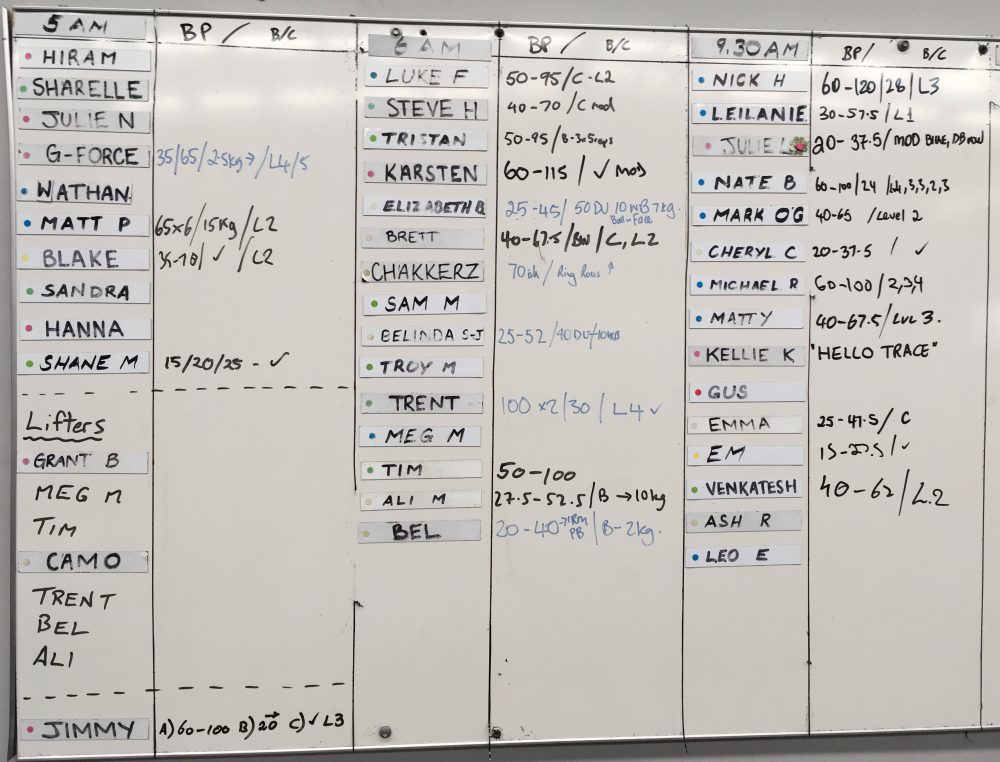 5 AM BP / B/C
HIRAM
SHARELLE
JULIE N
G-FORCE 35/65/2.5kg→/L4/5
WATHAN
MATT P 65x6/15kg/L2
BLAKE 35-70/✓/L2
SANDRA
HANNA
SHANE M 15/20/25 - ✓
Lifters
GRANT B
MEG M
TIM
CAMO
TRENT
BEL
ALI
JIMMY A) 60-100 B) 20 C) ✓ L3
6 AM BP / B/C
LUKE F 50-95/C-L2
STEVE H 40-70/C mod
TRISTAN 50-95/B-
KARSTEN 60-115/✓ MOD
ELIZABETH B 25-45/50 DU 10 WB 7kg
Ball-Face
BRETT 40-67.5/BW/C, L2
CHAKKERZ 70ish/Ring Rows ↑
SAM M
BELINDA S-J 25-52/40DU/10WB
TROY M
TRENT 100 x2/30/L4 ✓
MEG M
TIM 50-100
ALI M 27.5-52.5/B→10kg
BEL 20-40→1RM PB/B-2kg.
9.30AM BP/ B/C
NICK H 60-120/28/L3
LEILANIE 30-57.5/L1
JULIE L 20-37.5/MOD BIKE, DB row
NATE B 60-100/24/L4,3,3,2,3
MARK O'G 40-65 /Level 2
CHERYL C 20-37.5 / ✓
MICHAEL R 60-100/2,3,4
MATTY 40-67.5/LVL 3.
KELLIE K "HELLO TRACE"
GUS
EMMA 25-47.5/C
EM 15-27.5/✓
VENKATESH 40-62/L.2
ASH R
LEO E